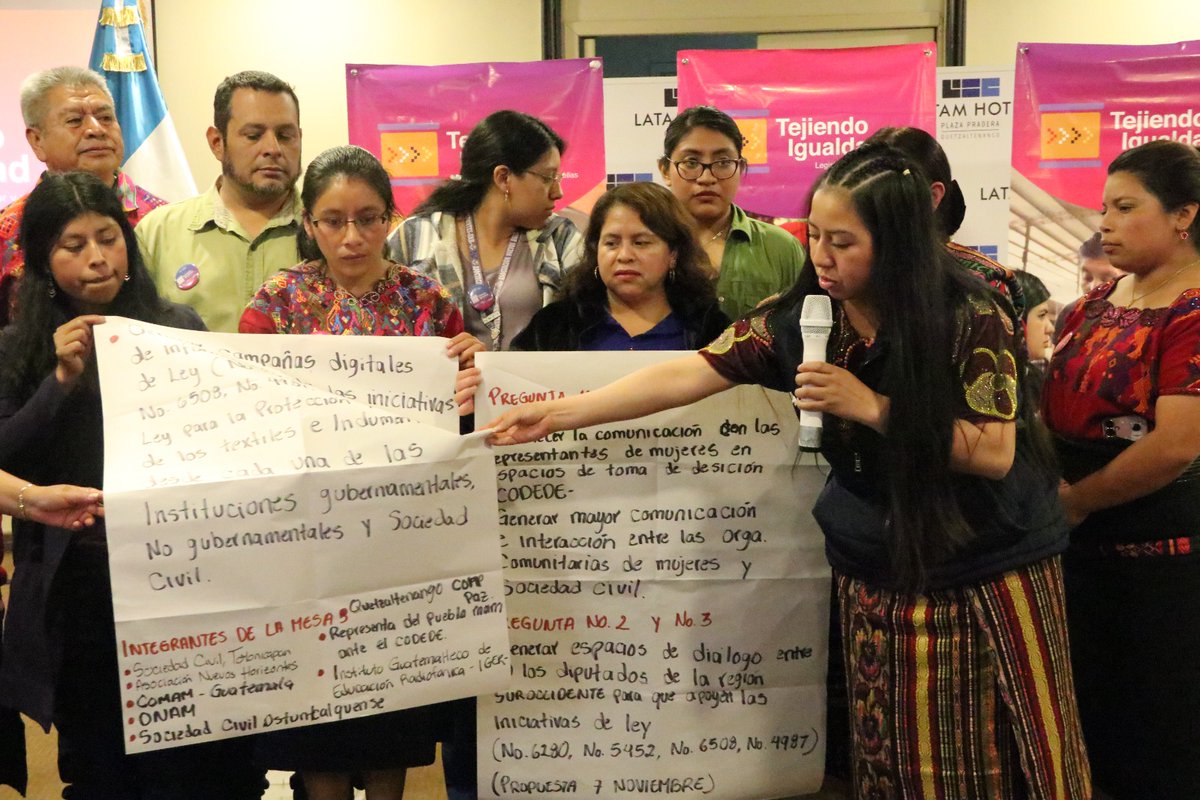 Tejiendo
Igualda
LATA
TAM HOT
PLAZA PRADERA
QUETZALTENANGO
Tejiendo
Igualda
LATA
Campañas digitales
de Ley
No. 6508, No.
las iniciativas
Ley para la Protección
de los textiles e Indumen
cada una de las
Instituciones gubernamentales,
No gubernamentales y Sociedad
Civil.
INTEGRANTES DE LA MESA 3
• Sociedad Civil, Totonicapán
• Asociación Nuevos Horizontes
• COMAM - Guatemala
• ONAM
• Sociedad Civil Ostuncalquense
Quetzaltenango COMP
Paz.
• Representa del Pueblo mam
ante el CODEDE.
• Instituto Guatemalteco de
Educación Radiofónica - IGER-
PREGUNTA
cer la comunicación con las
epresentantes de mujeres en
spacios de toma de desición
CODEDE-
Generar mayor comunicación
e interacción entre las orga.
comunitarias de mujeres y
Sociedad Civil.
PREGUNTA No. 2 y No. 3
Generar espacios de diálogo entre
los diputados de la región
SUROCCIDENTE para que apoyen las
iniciativas de ley
(No. 6280, No. 5452, No. 6508, No. 4987)
(PROPUESTA 7 NOVIEMBRE)